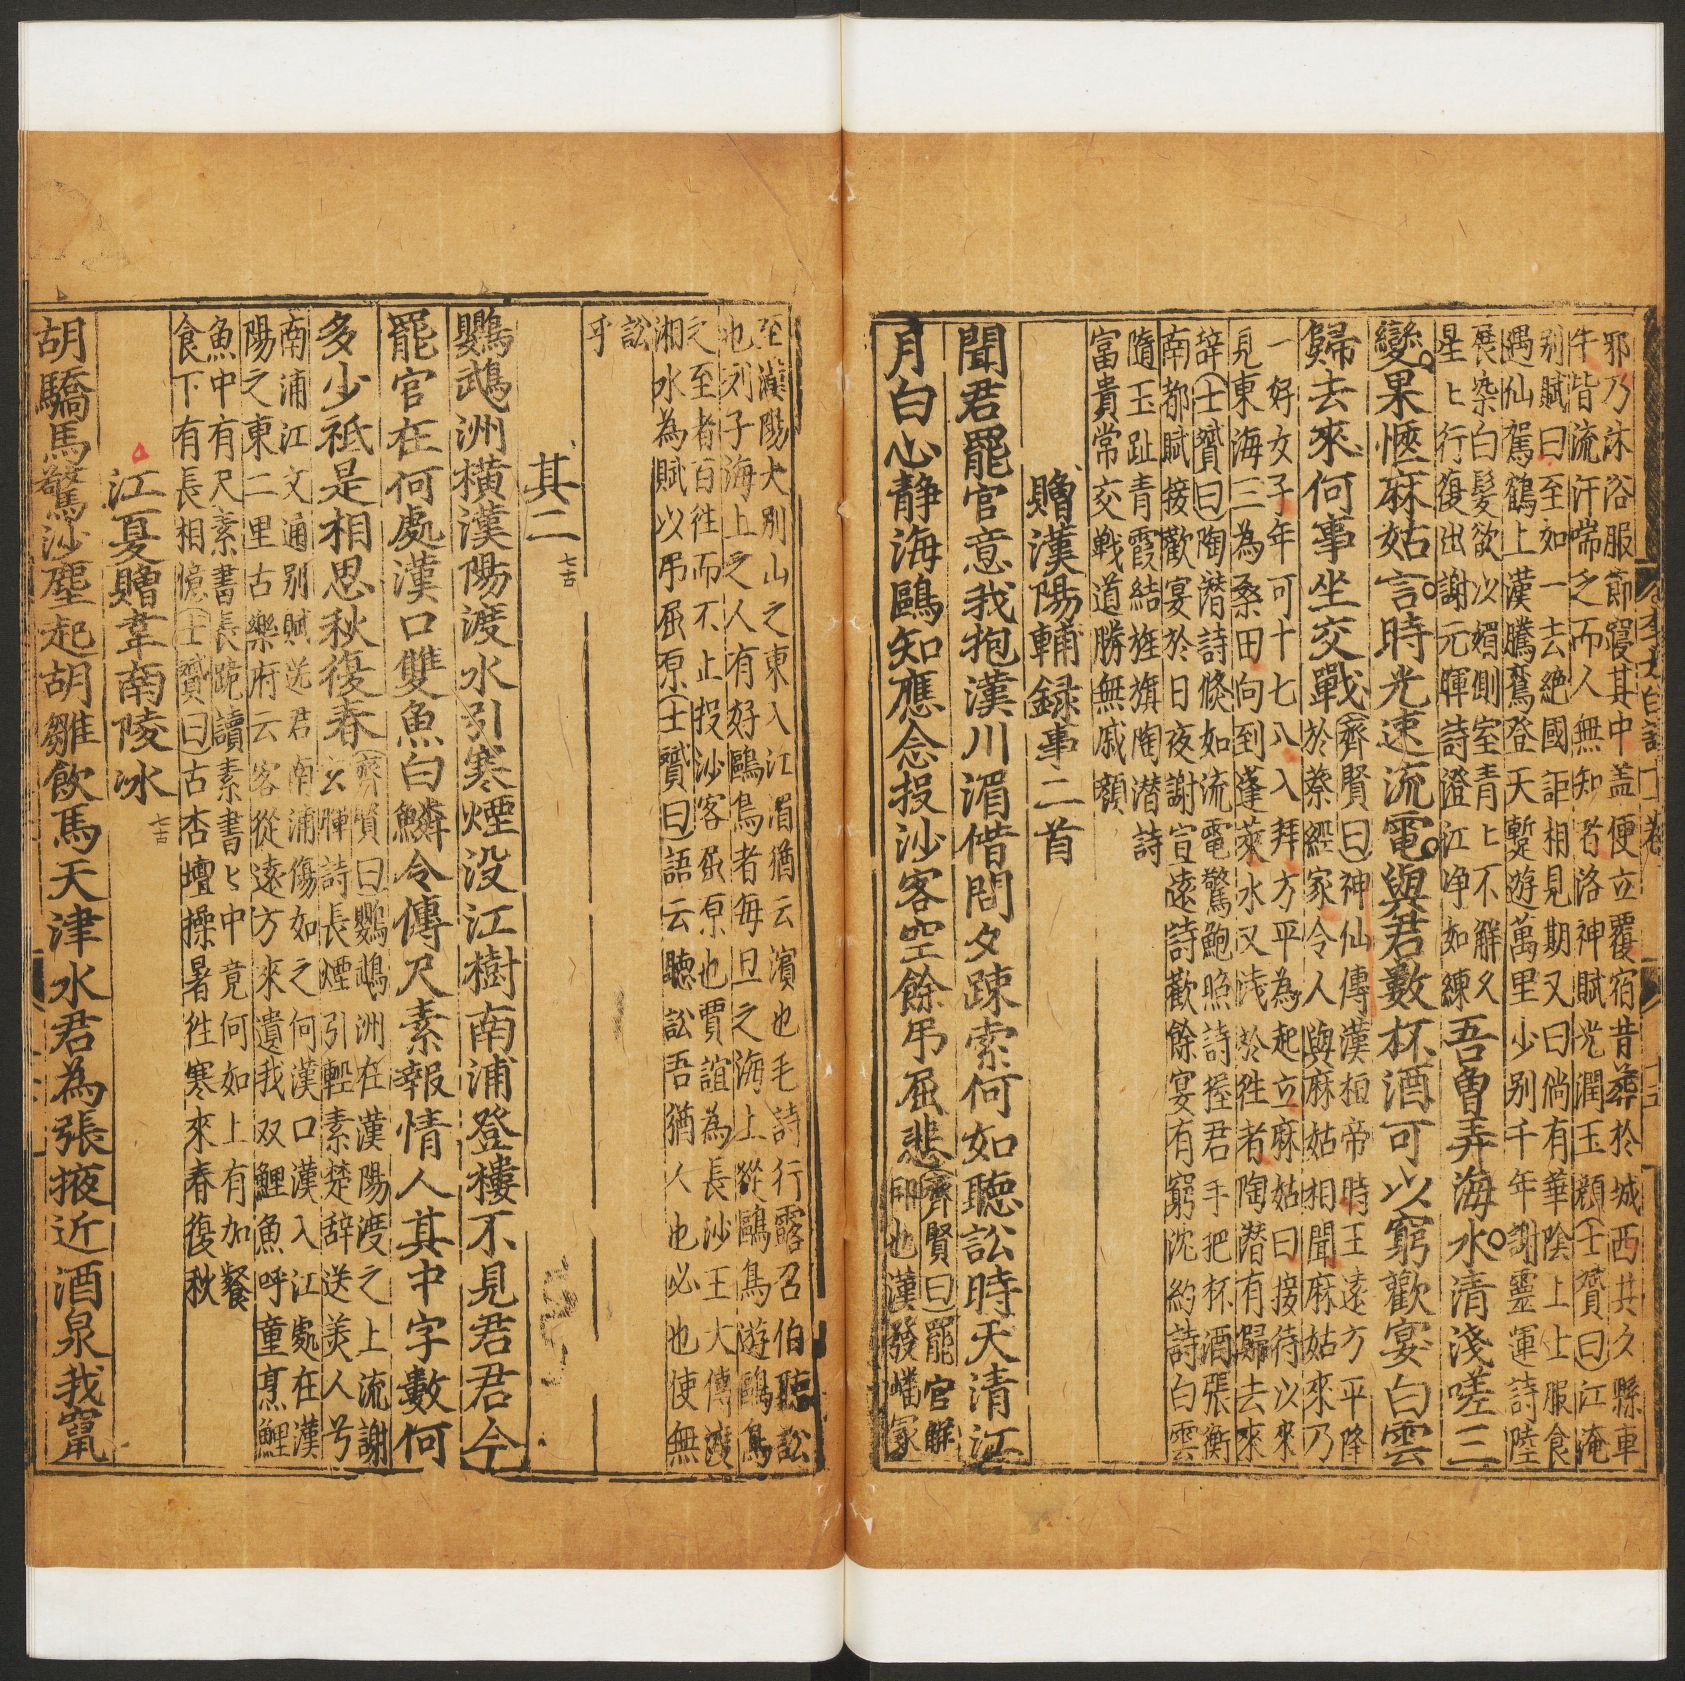 邪乃沐浴服飾躡其中盖便立覆宿昔葬於城西共久縣車
牛皆流汗喘乏而人無知者洛神賦光潤玉顔士贇曰江淹
别賦曰至如一去絶國詎相見期又曰倘有華陰上士服食
遇仙駕鶴上漢騰鸞登天蹔遊萬里少别千年謝靈運詩陸
展染白髮欲以媚側室青ヒ不解久
星ヒ行復出謝元暉詩澄江净如練
吾曾弄海水清淺嗟三
變果愜麻姑言時光速流電與君數杯酒可以窮歡宴白雲
歸去來何事坐交戰
齊賢曰神仙傳漢桓帝時王遠方平降
於蔡經家令人與麻姑相聞麻姑來乃
一好女子年可十七八入拜方平為起立麻姑曰接待以來
見東海三為桑田向到蓬萊水又淺於往者陶潜有歸去來
辞士贇曰陶潜詩倏如流電驚鮑照詩握君手把杯酒張衡
南都賦接歡宴於日夜謝宣遠詩歡餘宴有窮沈約詩白雲
隨玉趾青霞結旌旗陶潜詩
富貴常交戦道勝無戚顔
贈漢陽輔録事二首
聞君罷官意我抱漢川湄借問久踈索何如聴訟時天清江
月白心静海鷗知應念投沙客空餘吊屈悲
齊賢曰罷官解
印也漢發嶓冢
至漢陽大别山之東入江湄猶云濱也毛詩行露召伯聴訟
也列子海上之人有好鷗鳥者每旦之海上從鷗鳥遊鷗鳥
之至者百往而不止投沙客屈原也賈誼為長沙王大傅渡
湘水為賦以吊屈原士贇曰語云聴訟吾猶人也必也使無
訟
乎
其二
七古
鸚鵡洲横漢陽渡水引寒煙没江樹南浦登樓不見君君今
罷官在何處漢口雙魚白錦鱗令傳尺素報情人其中字數何
多少祗是相思秋復春
齊賢曰鸚鵡洲在漢陽渡之上流謝
玄暉詩長煙引輕素楚辞送美人兮
南浦江文通别賦送君南浦傷如之何漢口漢入江處在漢
陽之東二里古樂府云客從遠方來遺我双鯉魚呼童烹鯉
魚中有尺素書長跪讀素書ヒ中竟何如上有加餐
食下有長相憶士贇曰古杏壇操暑徃寒來春復秋
江夏贈韋南陵冰
七古
胡驕馬驚沙塵起胡雛飲馬天津水君為張掖近酒泉我竄